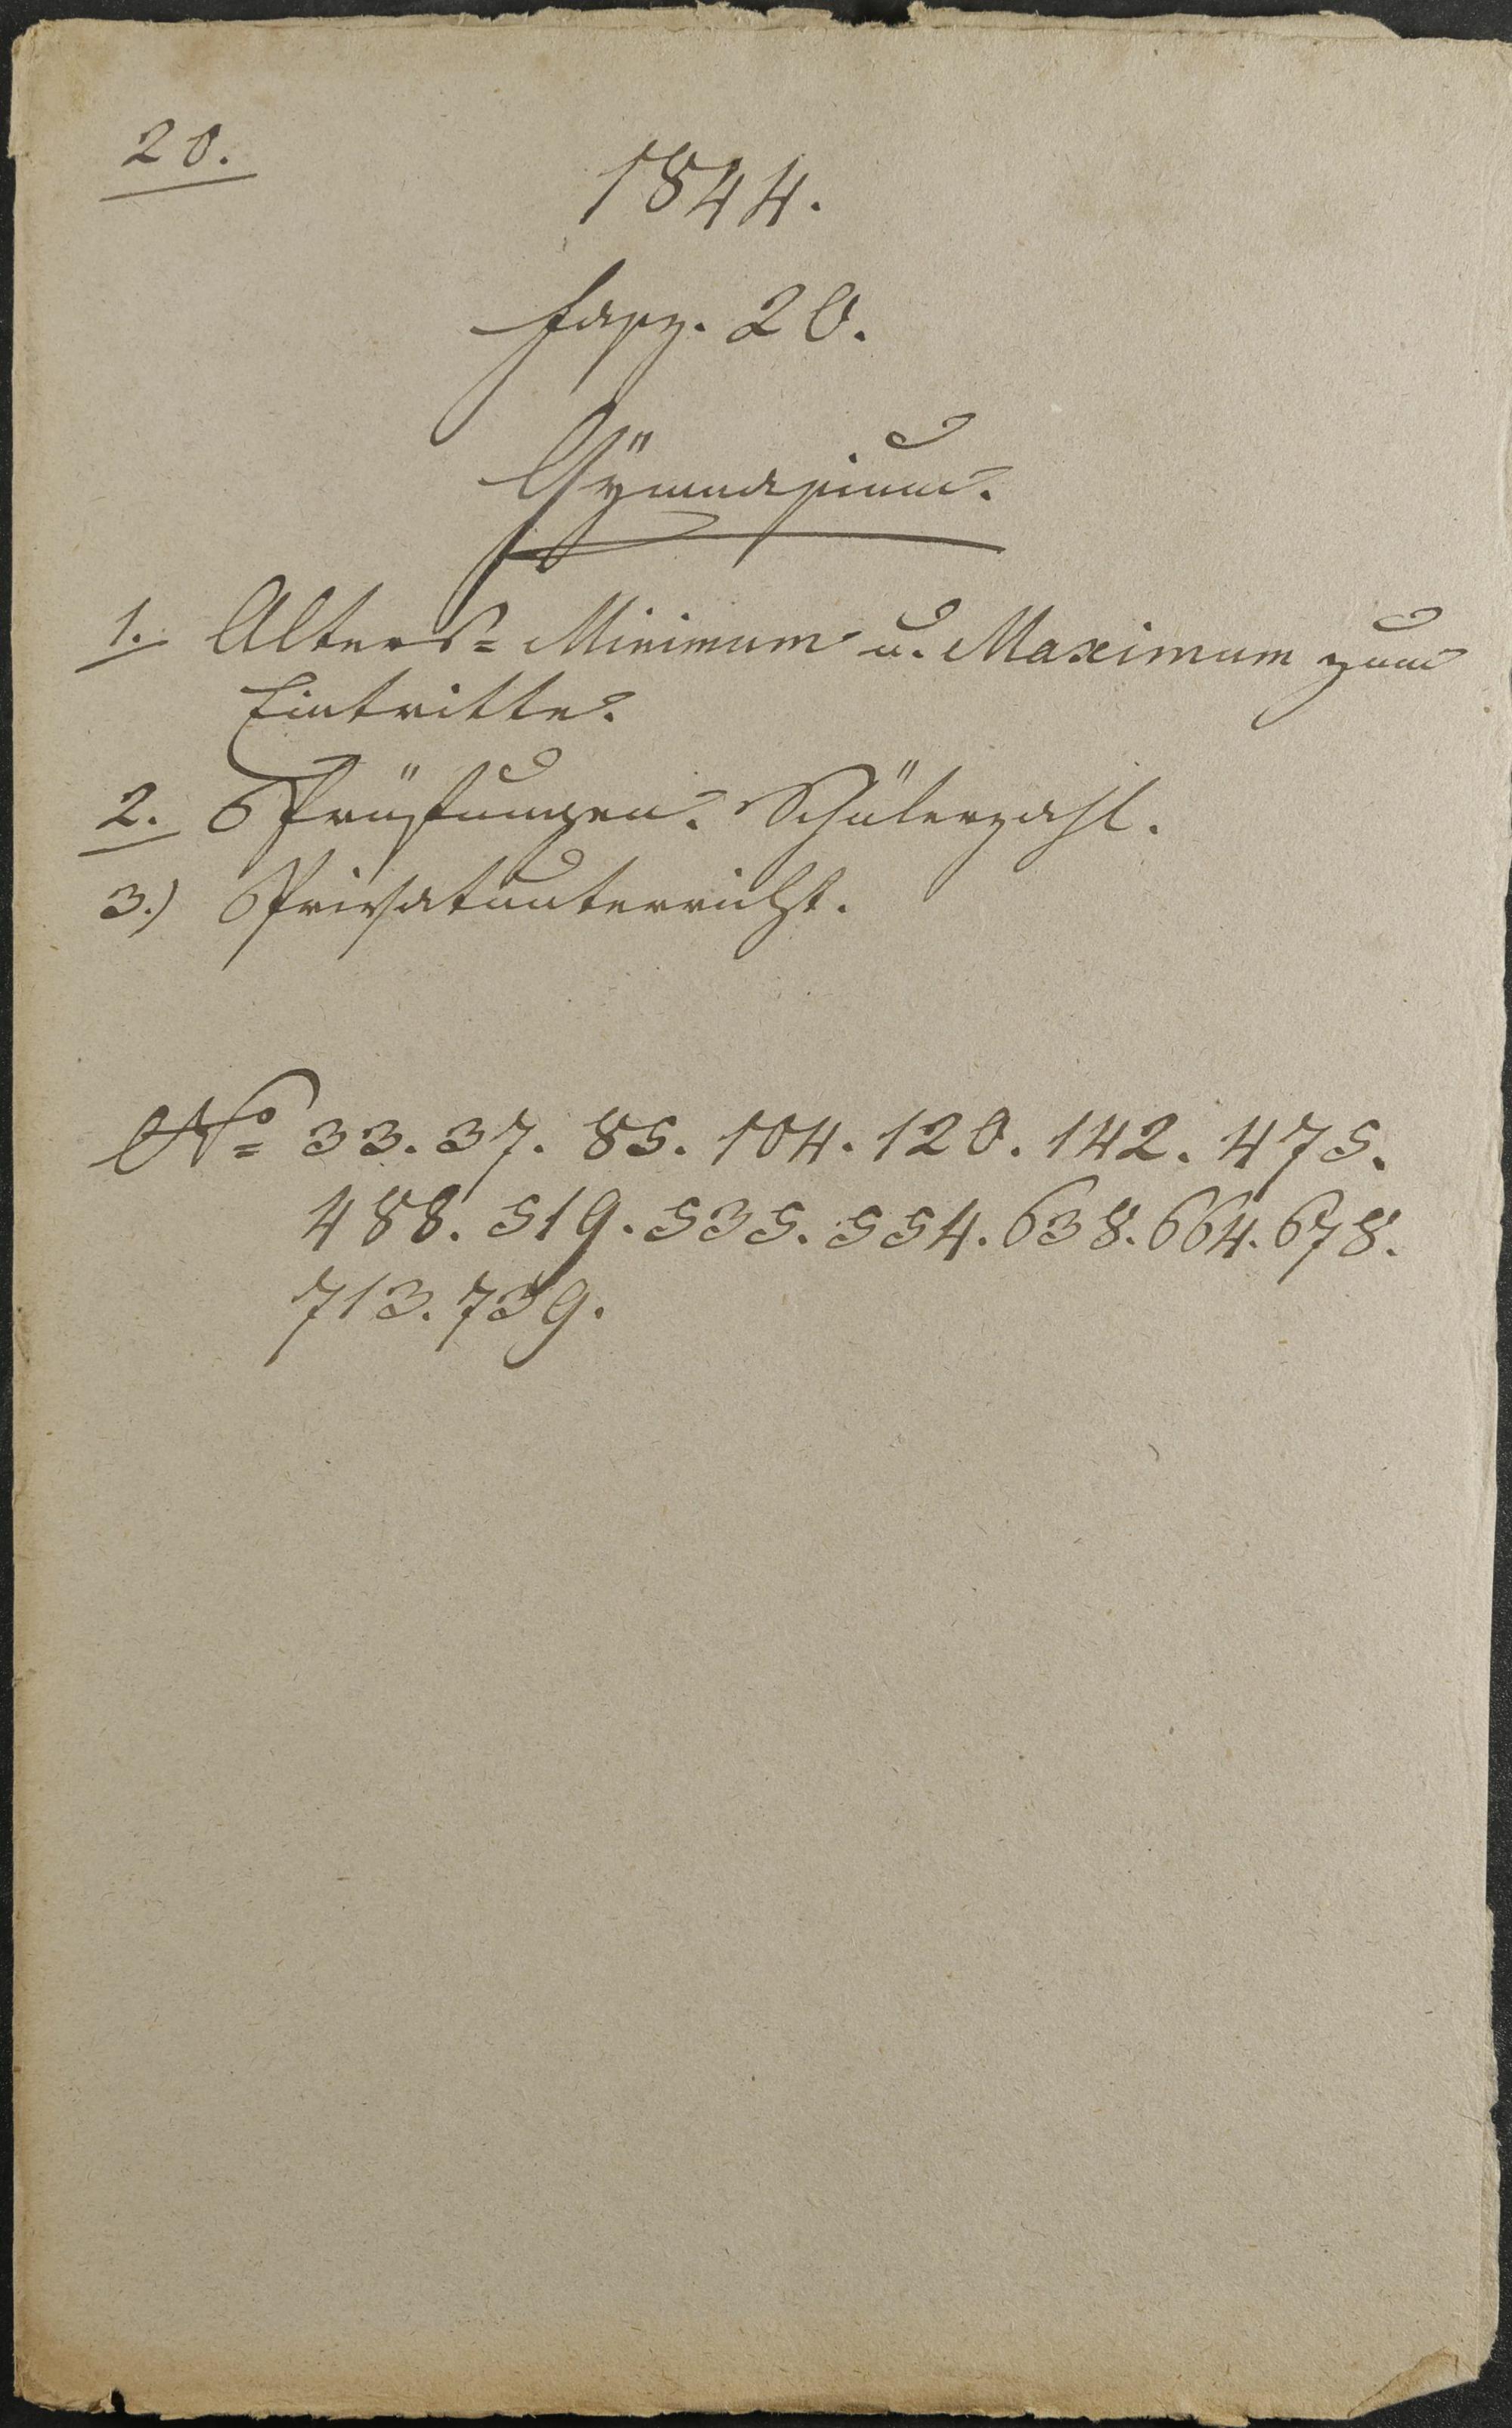 20.
1844.
Fasz. 20.
Gÿmnasium.
1. Alters= Minimum u. Maximum zum
Eintritte.
2. Prüfungen. Schülerzahl.
3.) Privatunterricht.
No 33. 37. 85. 104. 120. 142. 475.
488. 519. 535. 554. 638. 664. 678.
713. 739.